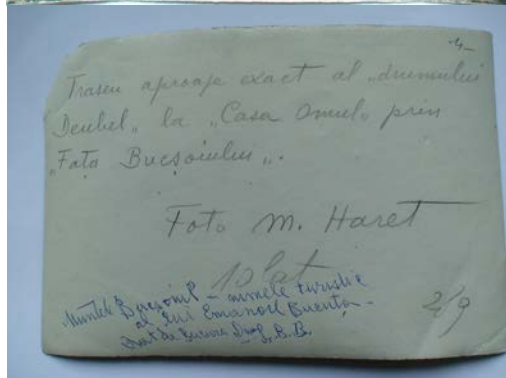 -4-
Traseu aproape exact al „drumului
Deubel„ la „Casa Omul„ prin
„Fața Bucșoiului„.
Foto M. Haret
10 lat
Muntele Bucșoiul – numele turistic
al lui Emanoil Bucuța –
de Bucura Dumbravă
2/9